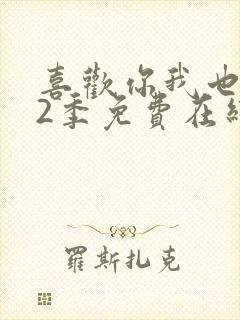 喜歡你我也
2季免費在
羅斯扎克